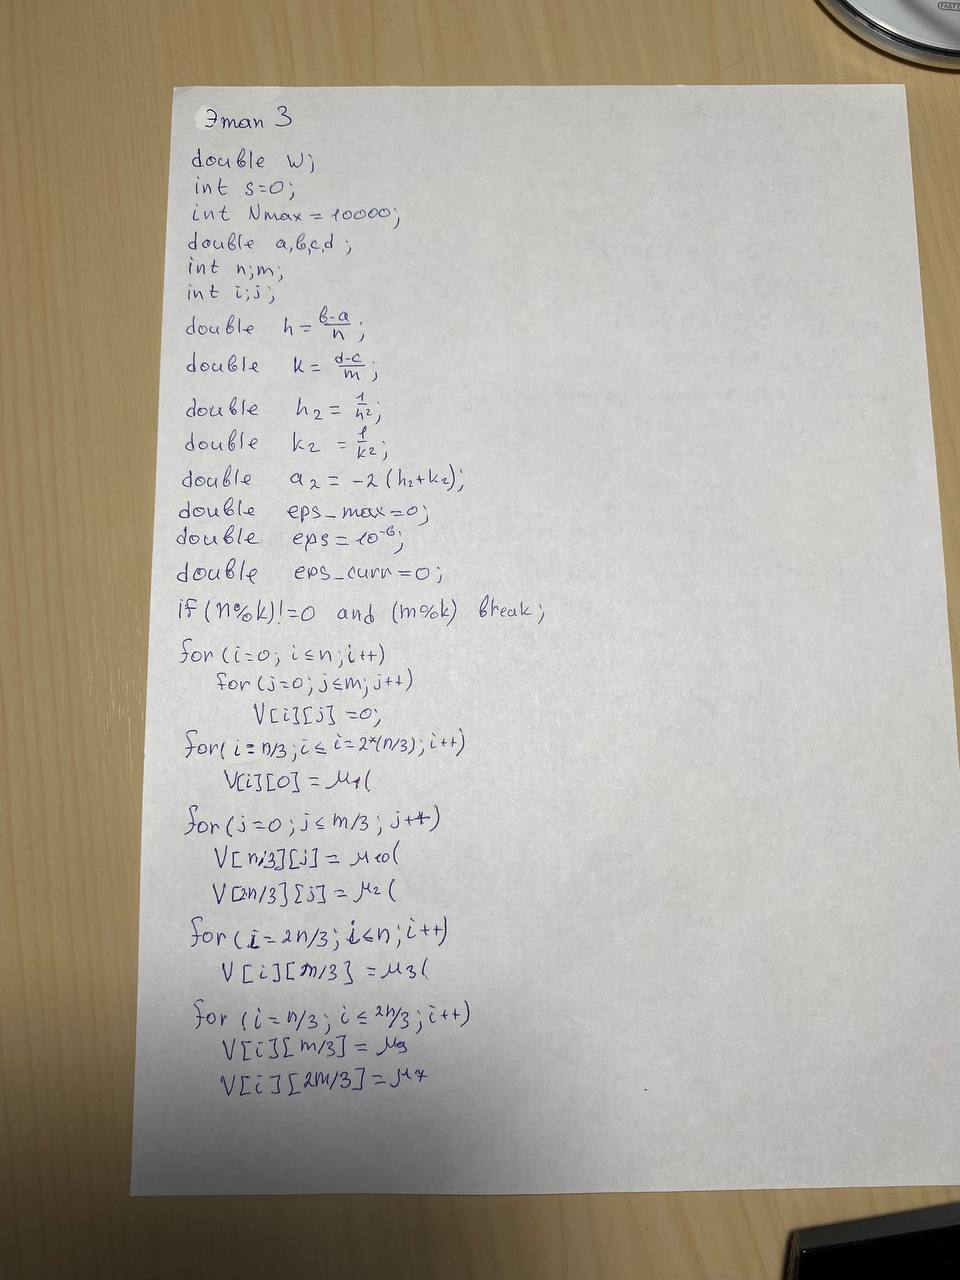 Этап 3
double w;
int s=0;
int Nmax = 10000;
double a,b,c,d;
int n;m;
int i;j;
double h = (b-a)/n;
double k = (d-c)/m;
double h2 = 1/h²;
double k2 = 1/k²;
double a2 = -2(h2+k2);
double eps_max=0;
double eps=10⁻⁶;
double eps_curr=0;
if (n%k)!=0 and (m%k) break;
for (i=0; i≤n; i++)
for (j=0; j≤m; j++)
V[i][j]=0;
for(i=n/3; i≤ i=2*(n/3); i++)
V[i][0] = μ1(
for (j=0; j≤m/3; j++)
V[n/3][j] = μ10(
V[2n/3][j] = μ2(
for (i=2n/3; i≤n; i++)
V[i][m/3] = μ3(
for (i=n/3; i≤2n/3; i++)
V[i][m/3] = μ9
V[i][2m/3] = μ7